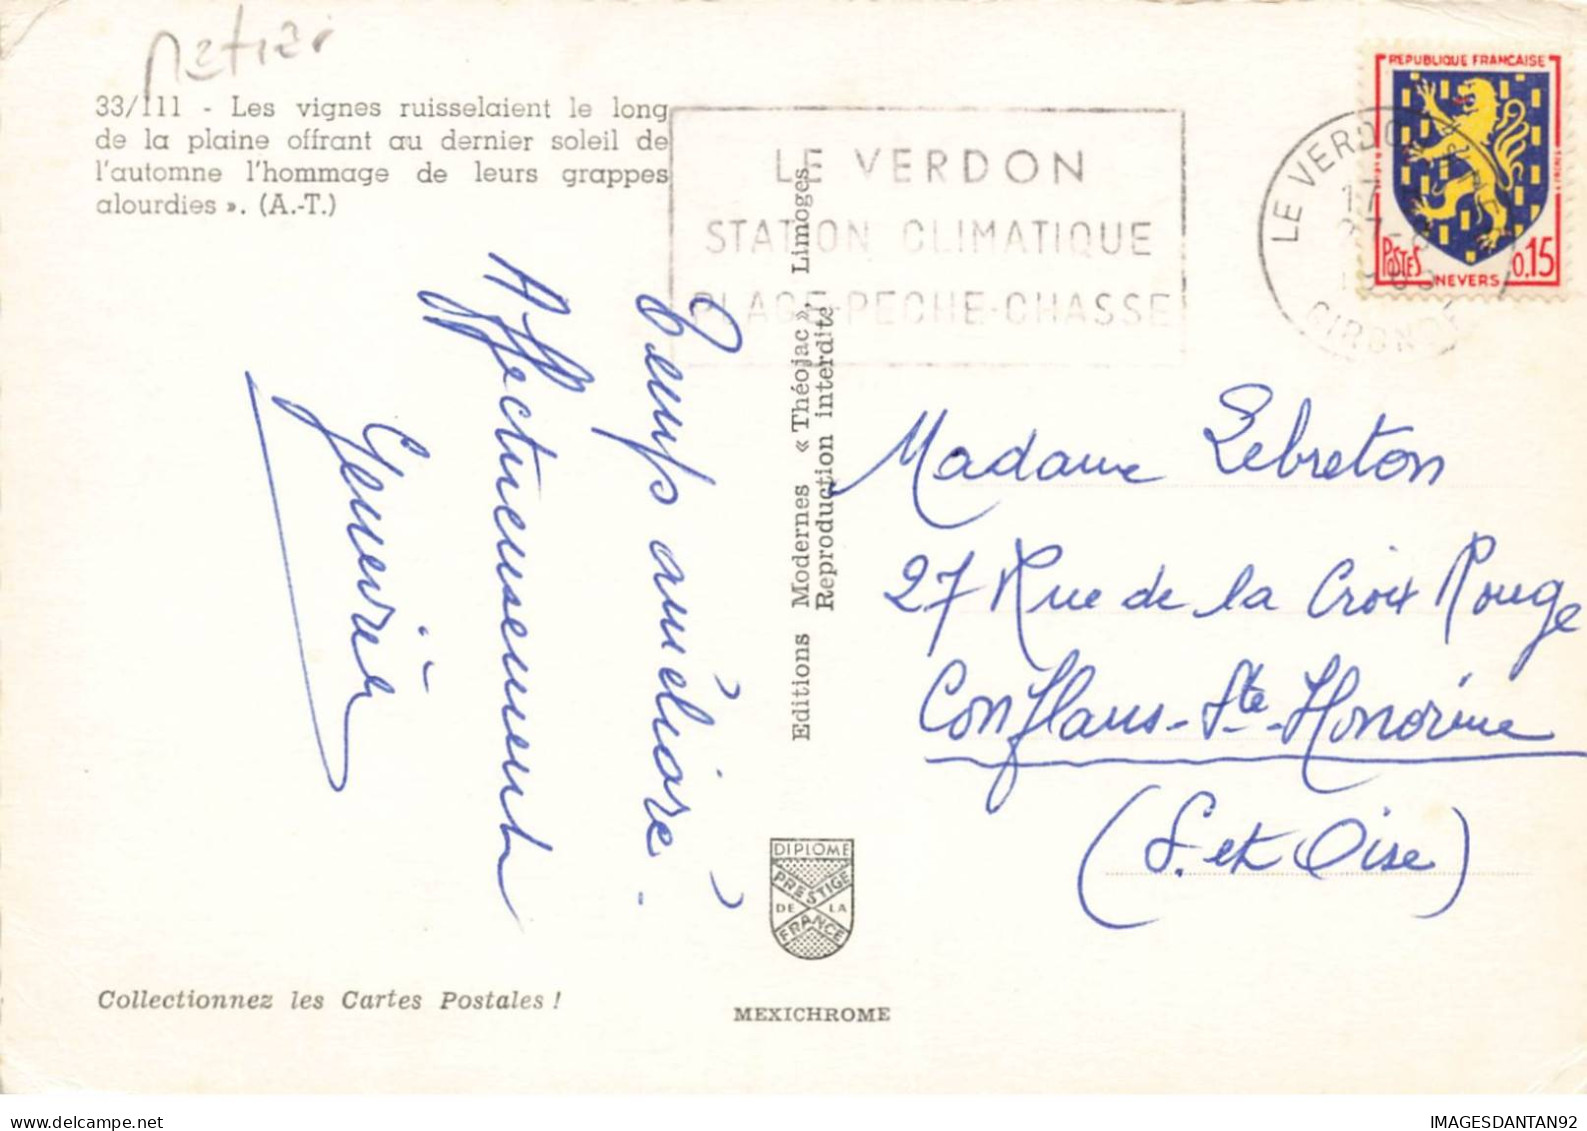 métier
33/111 - Les vignes ruisselaient le long
de la plaine offrant au dernier soleil de
l'automne l'hommage de leurs grappes
alourdies ». (A.-T.)
LE VERDON
STATION CLIMATIQUE
PLAGE-PECHE-CHASSE
LE VERDON
17
GIRONDE
REPUBLIQUE FRANCAISE
POSTES
NEVERS
0,15
Temps amélioré.
Affectueusement
Geneviève
Editions Modernes « Théojac », Limoges
Reproduction interdite
Madame Lebreton
27 Rue de la Croix Rouge
Conflans-Ste-Honorine
(S. et Oise)
DIPLOME
PRESTIGE
DE LA
FRANCE
Collectionnez les Cartes Postales !
MEXICHROME
IMAGESDANTAN92
delcampe.net